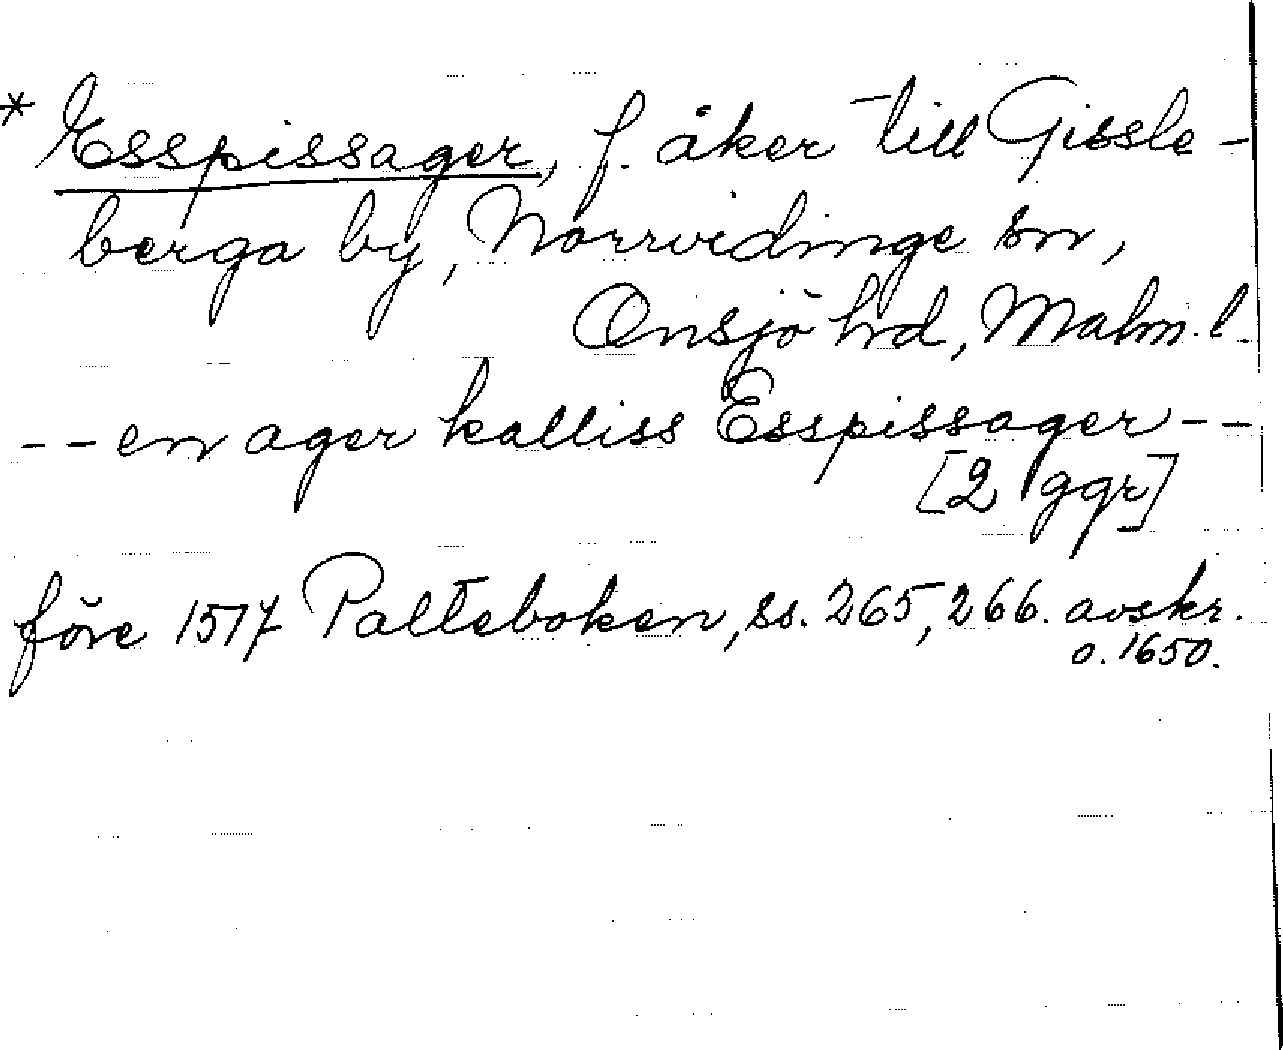 * Esspissager, f. åker till Gissle-
berga by, Norrvidinge sn,
Onsjö hrd, Malm. l.
-- en ager kalliss Esspissager --
[2 ggr]
före 1517 Palteboken, ss. 265, 266. avskr.
o. 1650.